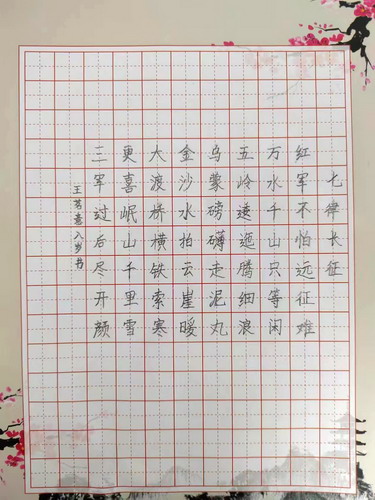 七律长征
红军不怕远征难
万水千山只等闲
五岭逶迤腾细浪
乌蒙磅礴走泥丸
金沙水拍云崖暖
大渡桥横铁索寒
更喜岷山千里雪
三军过后尽开颜
王茗八岁书